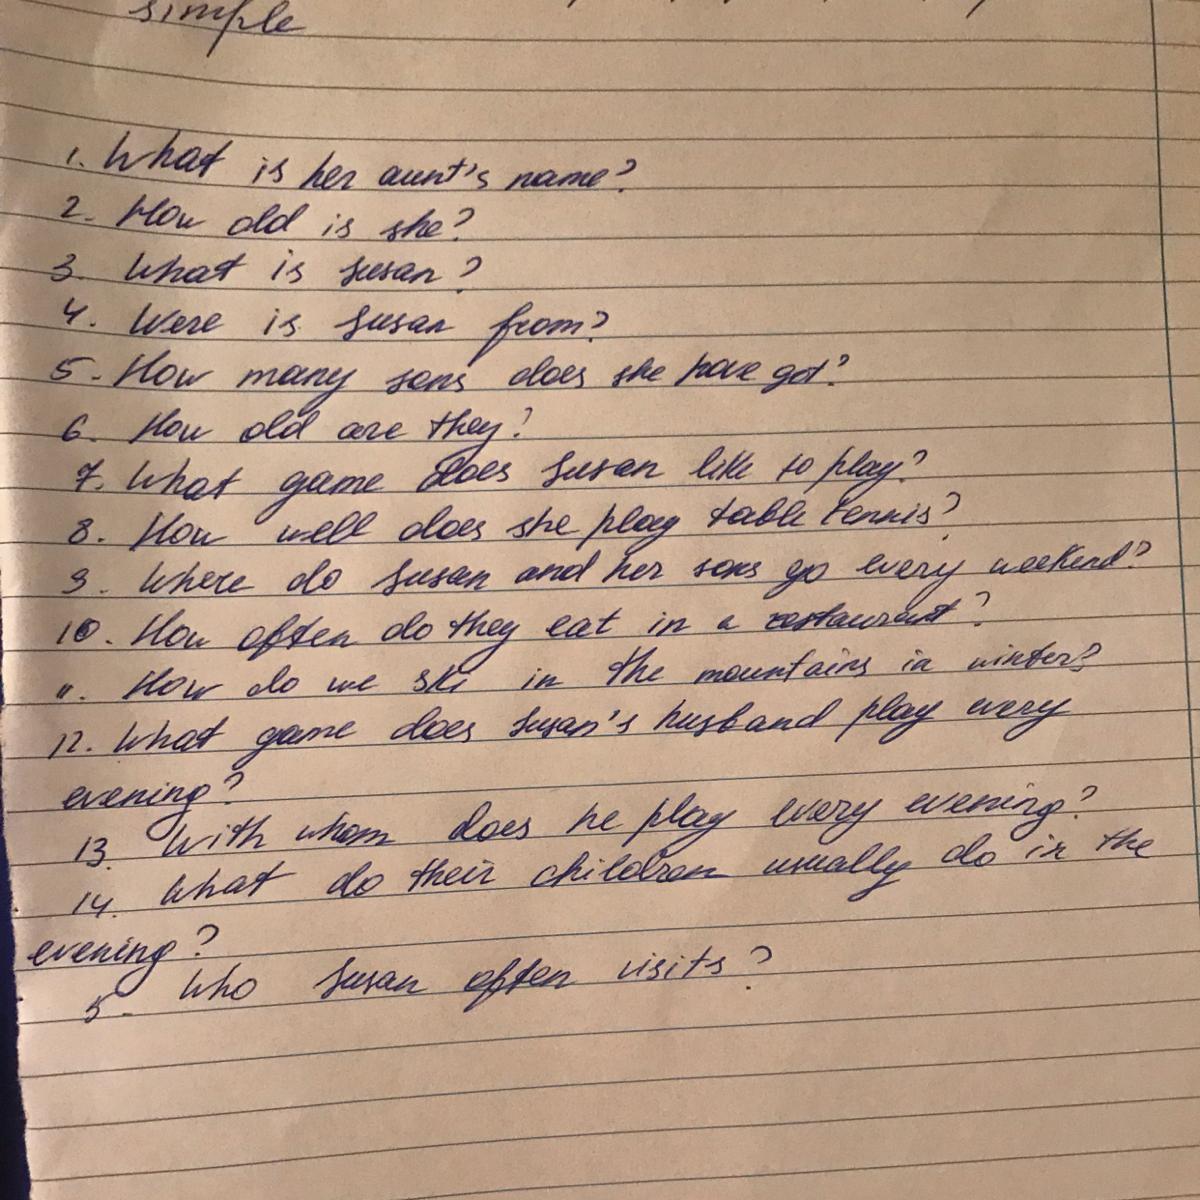 simple
1. What is her aunt's name?
2. How old is she?
3. What is Susan?
4. Were is Susan from?
5. How many sons does she have got?
6. How old are they?
7. What game does Susan like to play?
8. How well does she play table tennis?
9. Where do Susan and her sons go every weekend?
10. How often do they eat in a restaurant?
11. How do we ski in the mountains in winter?
12. What game does Susan's husband play every
evening?
13. With whom does he play every evening?
14. What do their children usually do in the
evening?
5. Who Susan often visits?